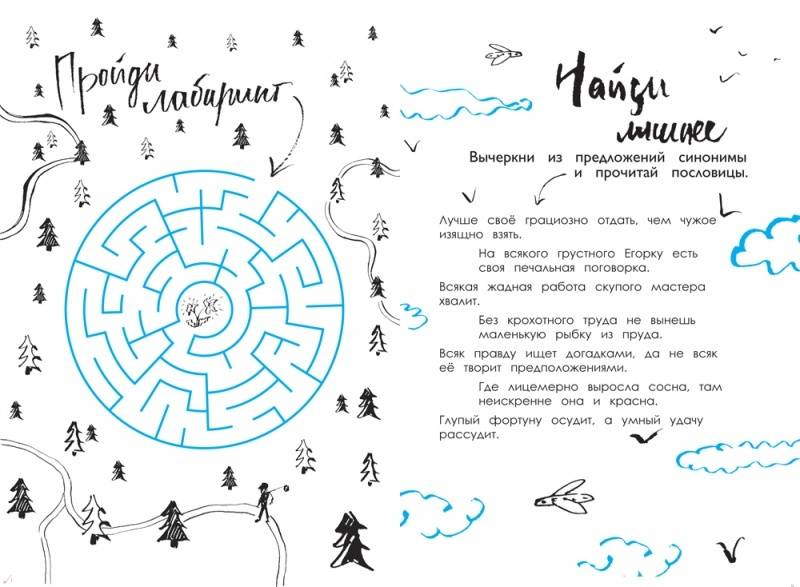 Пройди
лабиринт
Найди
лишнее
Вычеркни из предложений синонимы
и прочитай пословицы.
Лучше своё грациозно отдать, чем чужое
изящно взять.
На всякого грустного Егорку есть
своя печальная поговорка.
Всякая жадная работа скупого мастера
хвалит.
Без крохотного труда не вынешь
маленькую рыбку из пруда.
Всяк правду ищет догадками, да не всяк
её творит предположениями.
Где лицемерно выросла сосна, там
неискренне она и красна.
Глупый фортуну осудит, а умный удачу
рассудит.